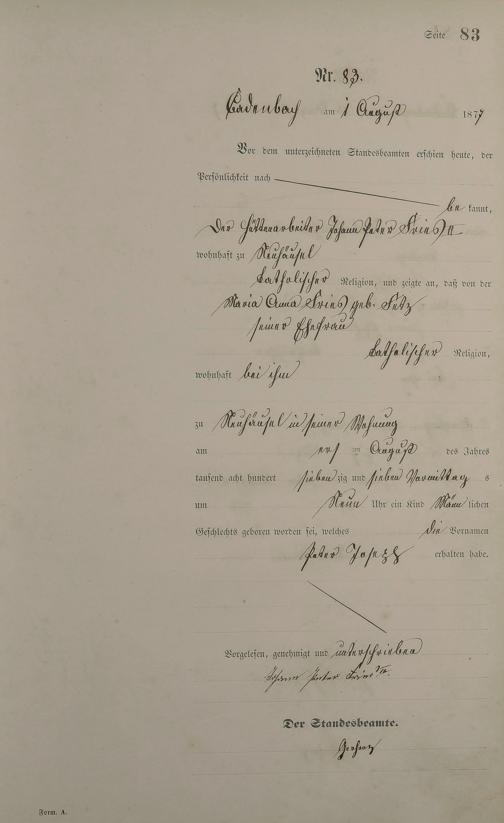 Seite 83
Nr. 83.
Cadenbach am 1 August 1877
Vor dem unterzeichneten Standesbeamten erschien heute, der
Persönlichkeit nach
be kannt,
der Hüttenarbeiter Johann Peter Fries II
wohnhaft zu Neuhäusel
katholischer Religion, und zeigte an, daß von der
Maria Anna Fries geb. Fetz
seiner Ehefrau
katholischer Religion,
wohnhaft bei ihm
zu Neuhäusel in seiner Wohnung
am ersten August des Jahres
tausend acht hundert sieben zig und sieben Vormittag s
um Neun Uhr ein Kind Männ lichen
Geschlechts geboren worden sei, welches die Vornamen
Peter Joseph erhalten habe.
Vorgelesen, genehmigt und unterschrieben
Johann Peter Fries
Der Standesbeamte.
Form. A.